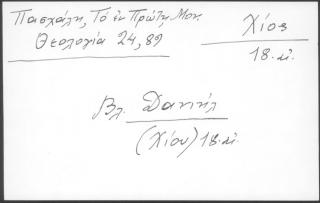 Πασχάλη, Τό ἐν Πρώτῃ Μον.
Θεολογία 24, 89
Χίος
18. αἰ.
Βλ. Δανιήλ
(Χίου) 18. αἰ.